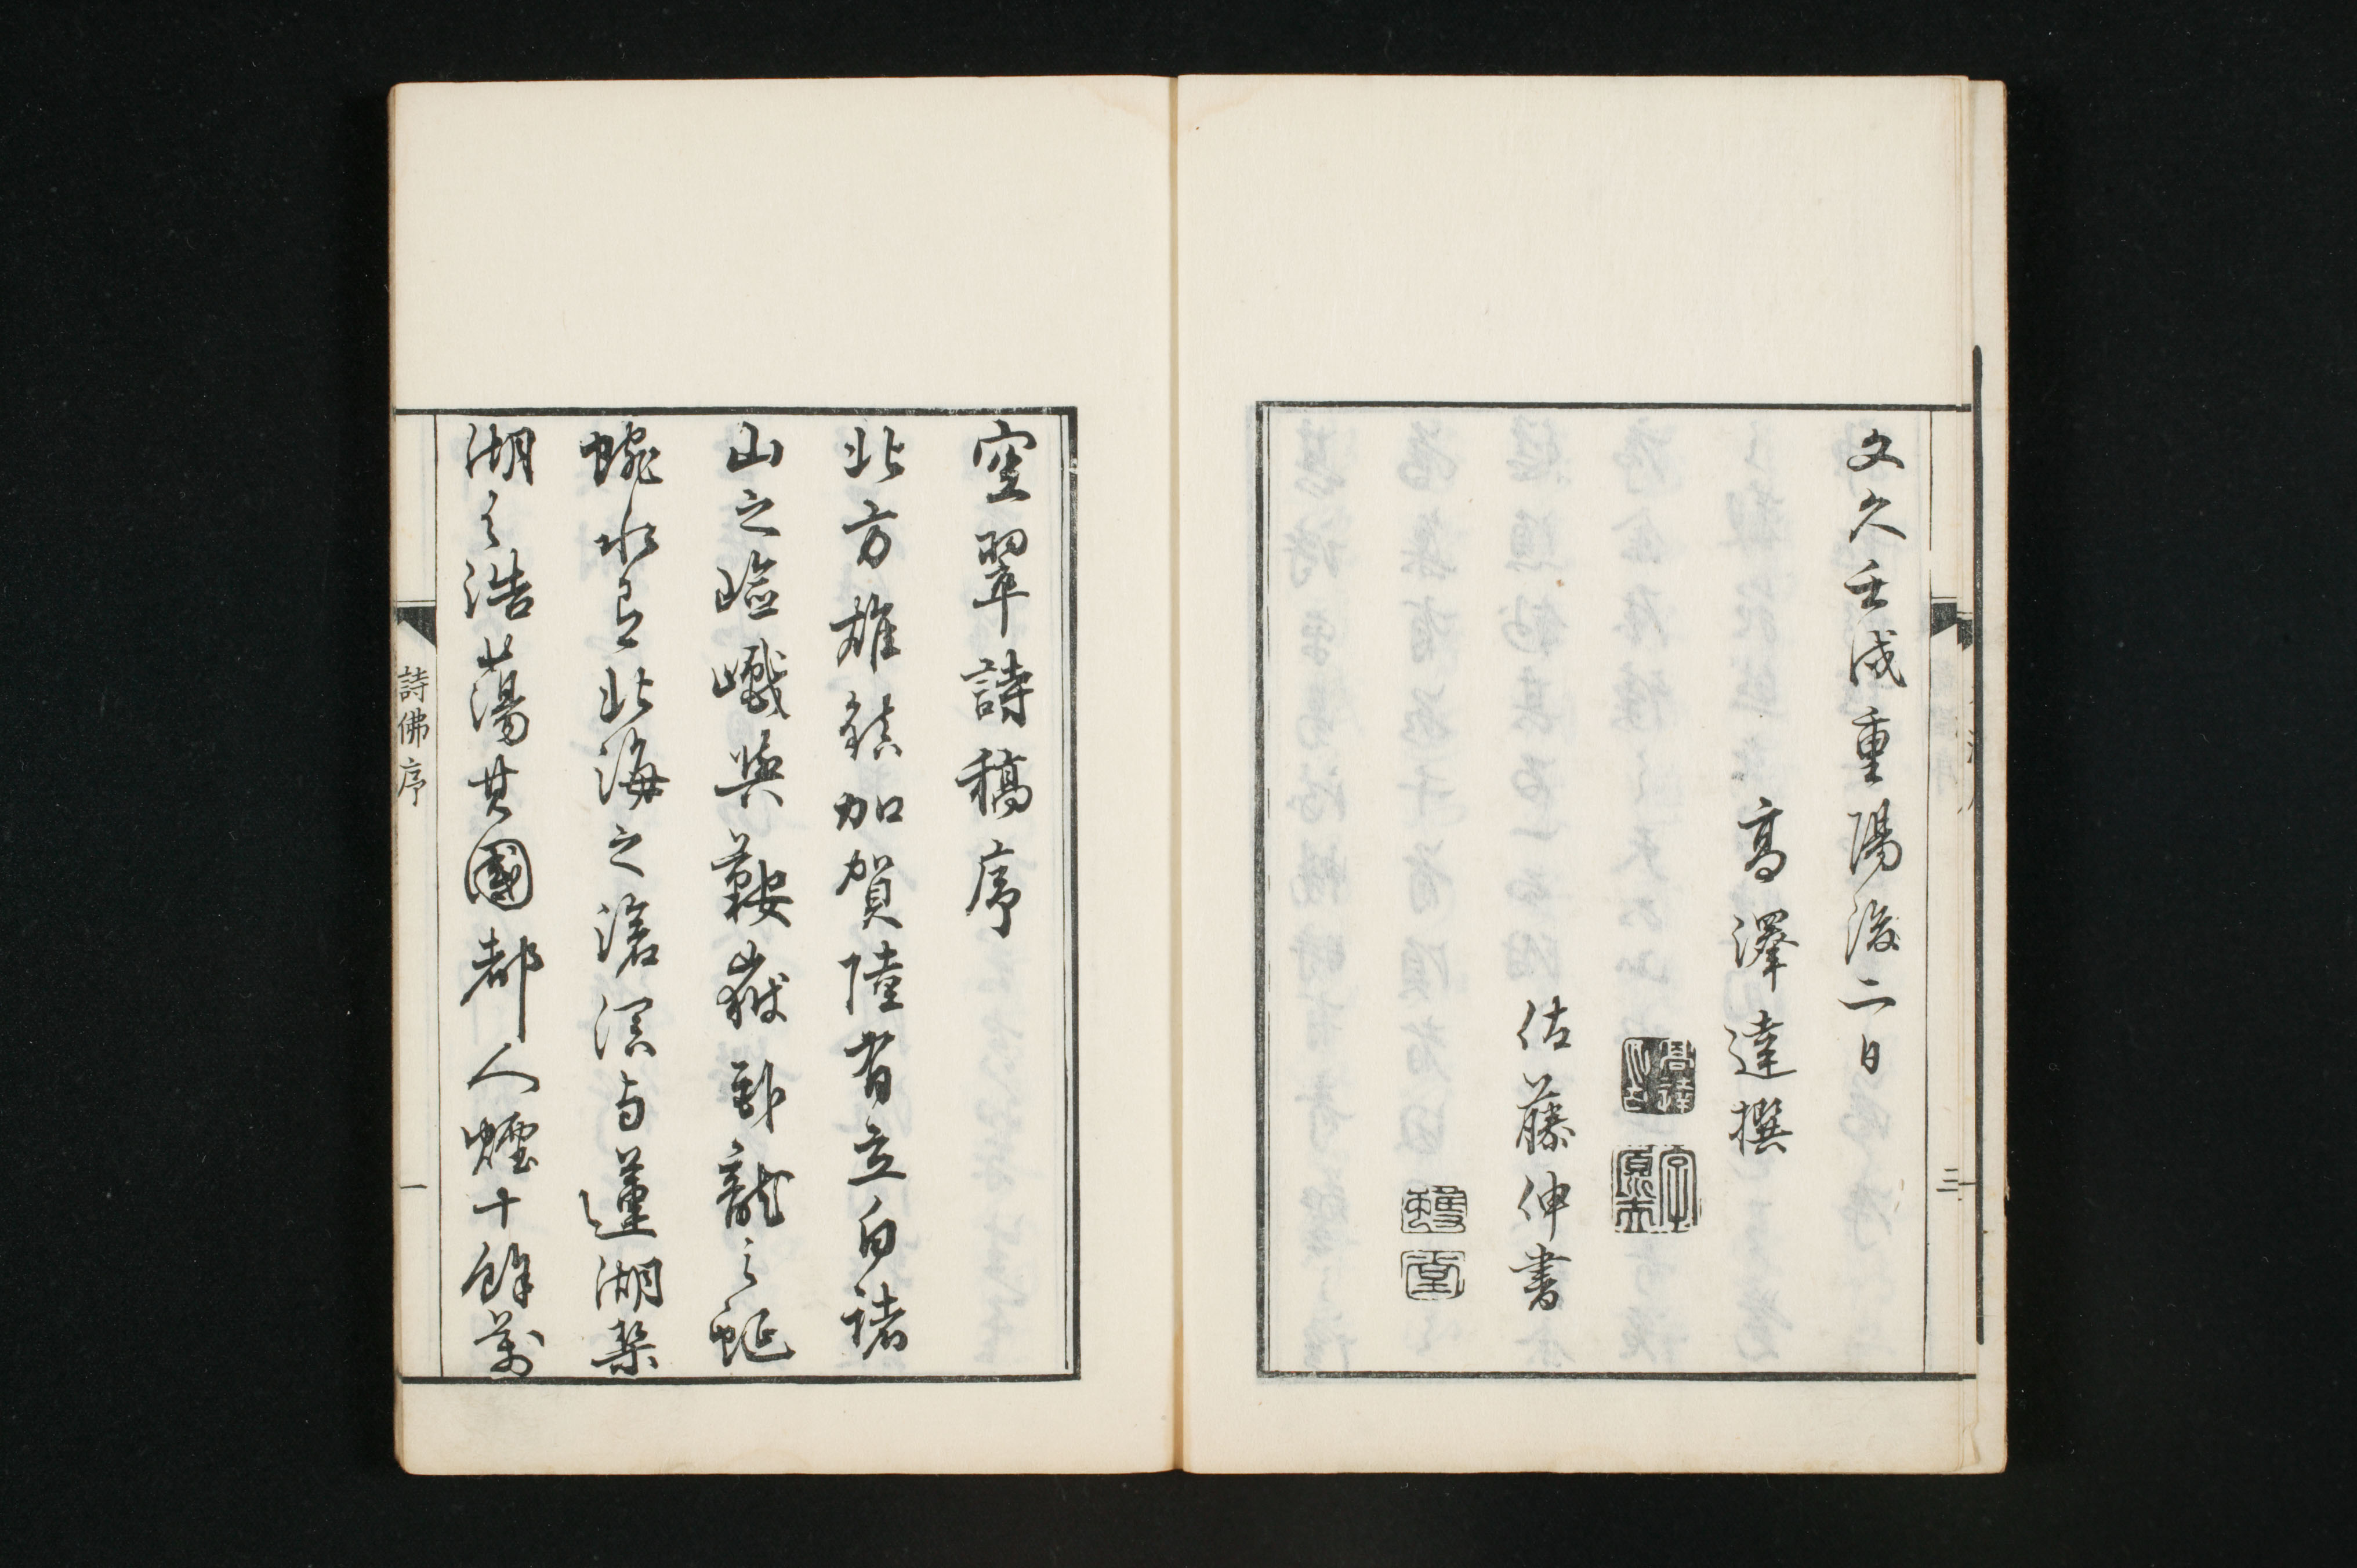 文久壬戌重陽後二日
高澤達撰
佐藤伸書
三
空翠詩稿序
北方雄鎮加賀陸有立白諸
山之嶮巇與鞍嶽臥龍之蜒
蜿水有北海之滄溟与蓮湖柴
湖之浩蕩其國都人煙十餘萬
詩佛序
一